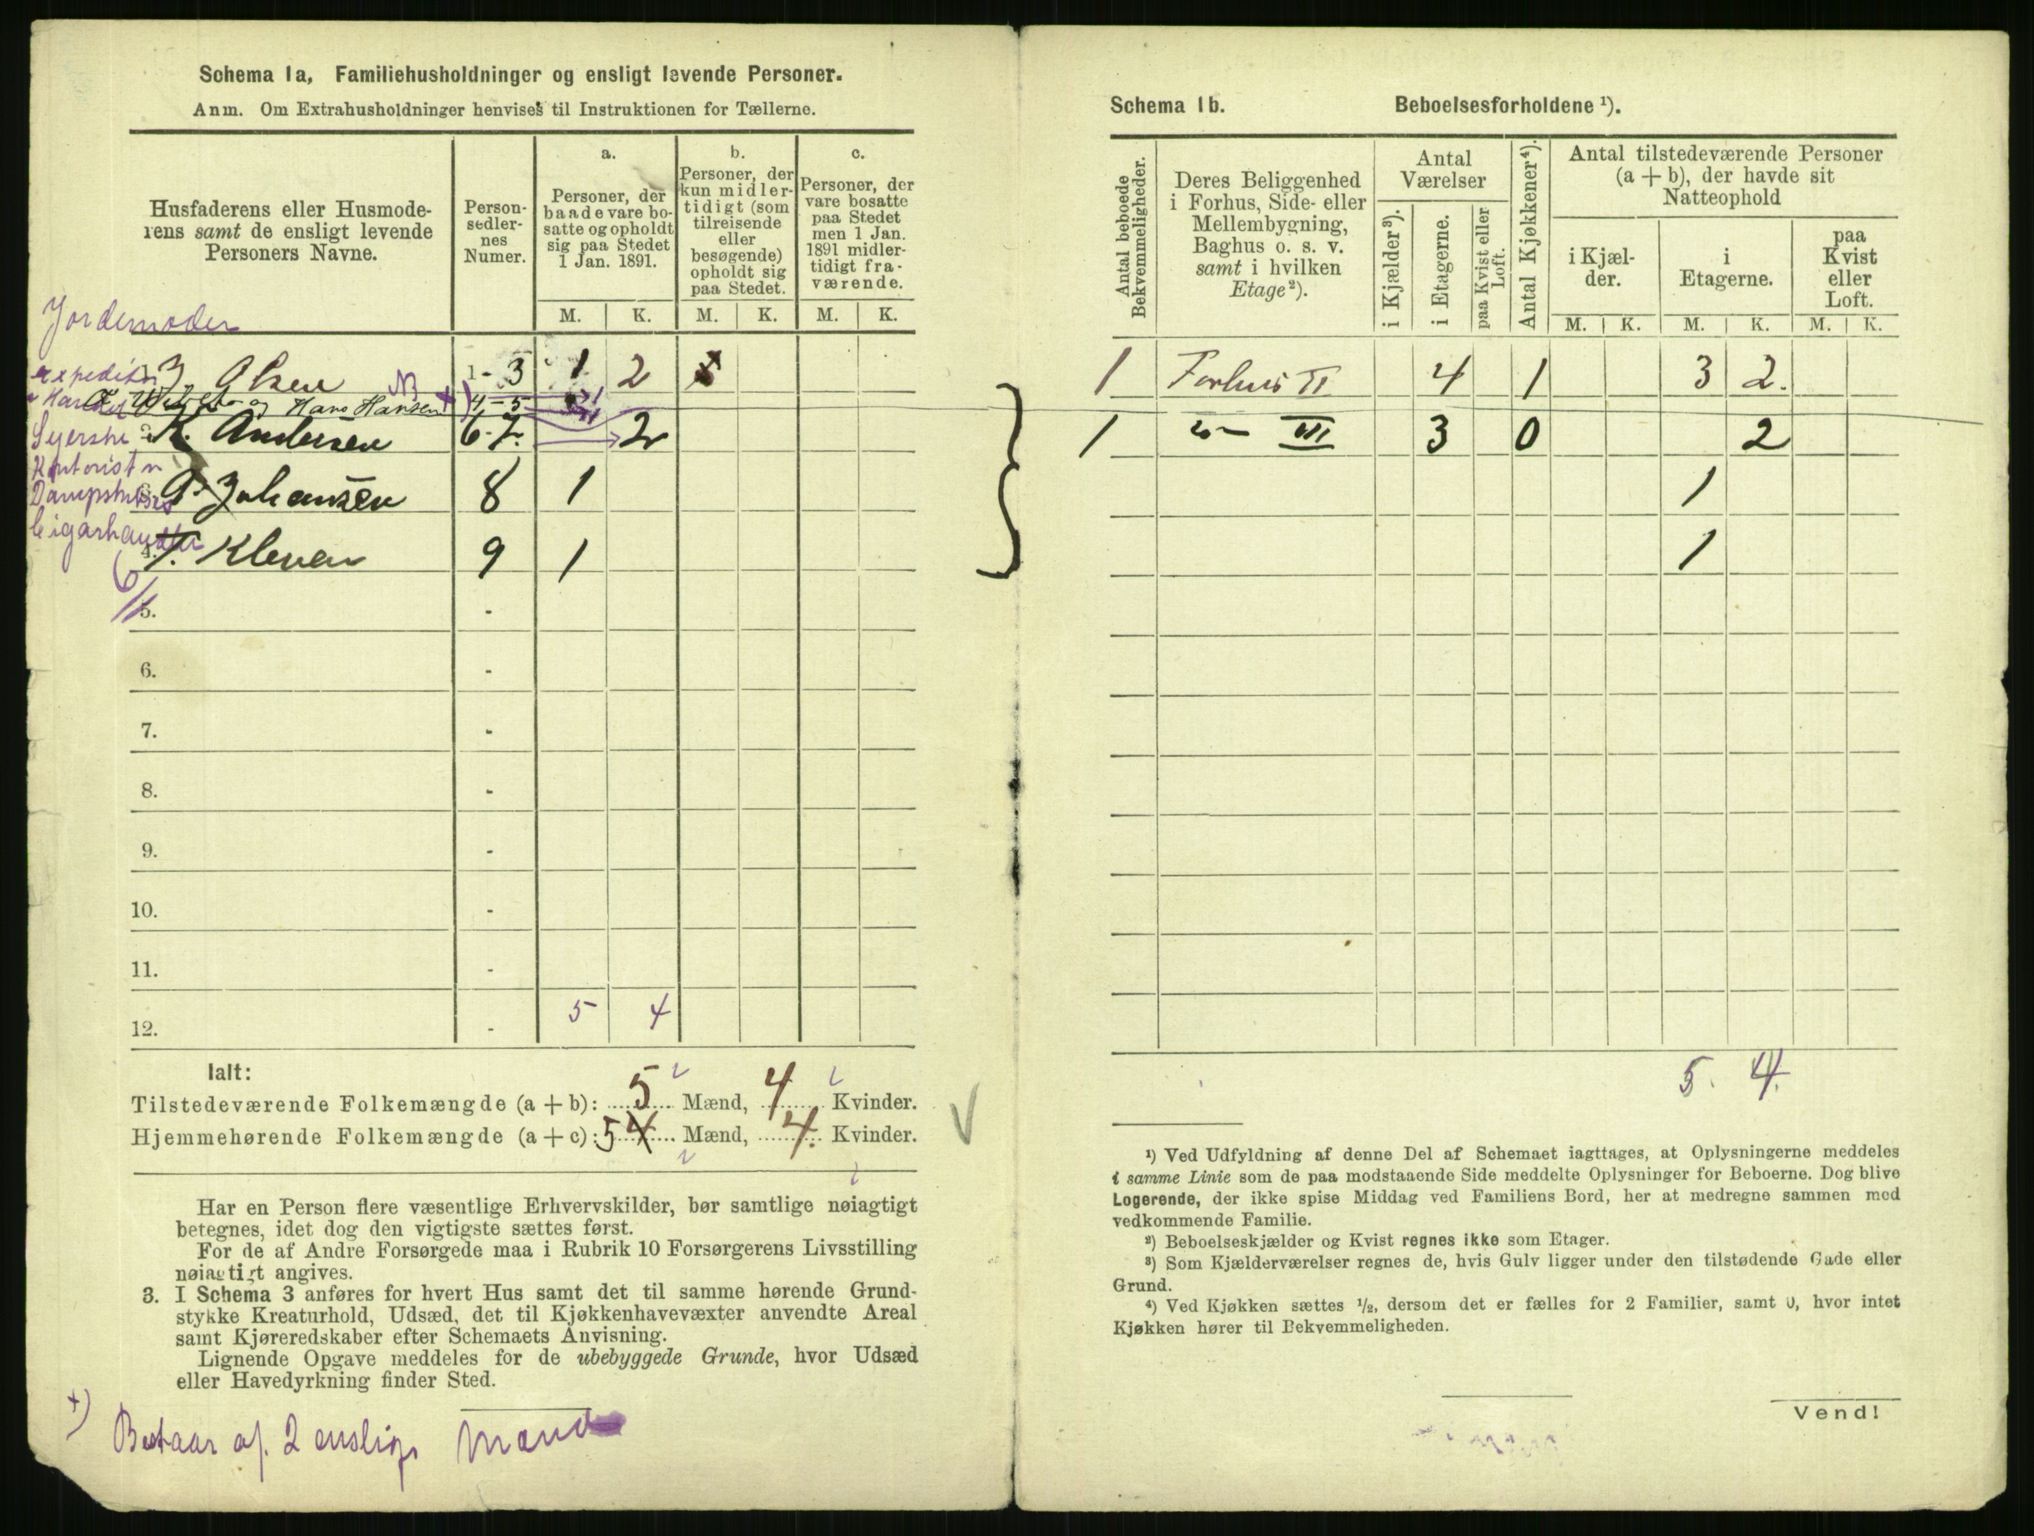 Schema 1a, Familiehusholdninger og ensligt levende Personer.
Anm. Om Extrahusholdninger henvises til Instruktionen for Tællerne.
Husfaderens eller Husmode-
rens samt de ensligt levende
Personers Navne.
Person-
sedler-
nes
Numer.
a.
Personer, der
baade vare bo-
satte og opholdt
sig paa Stedet
1 Jan. 1891.
b.
Personer, der
kun midler-
tidigt (som
tilreisende
eller
besøgende)
opholdt sig
paa Stedet.
c.
Personer, der
vare bosatte
paa Stedet
men 1 Jan.
1891 midler-
tidigt fra-
værende.
M. K. M. K. M. K.
Jordemoder
expeditør J. Olsen 1 - 3 1 2
NB
og Hans Hansen +) 4 - 5
Syerske K. Andersen 6-7. 2
Kontorist
Johansen 8 1
Cigarhandler
4. T. Kleven 9 1
6/1
5. -
6. -
7. -
8. -
9. -
10. -
11. -
5 4
12. -
Ialt:
Tilstedeværende Folkemængde (a + b): 5 Mænd, 4 Kvinder.
Hjemmehørende Folkemængde (a + c): 5 4 Mænd, 4. Kvinder.
Har en Person flere væsentlige Erhvervskilder, bør samtlige nøiagtigt
betegnes, idet dog den vigtigste sættes først.
For de af Andre Forsørgede maa i Rubrik 10 Forsørgerens Livsstilling
nøiagtigt angives.
3. I Schema 3 anføres for hvert Hus samt det til samme hørende Grund-
stykke Kreaturhold, Udsæd, det til Kjøkkenhavevæxter anvendte Areal
samt Kjøreredskaber efter Schemaets Anvisning.
Lignende Opgave meddeles for de ubebyggede Grunde, hvor Udsæd
eller Havedyrkning finder Sted.
+) Bestaar af 2 enslige Mænd
Schema 1b. Beboelsesforholdene ¹).
Antal beboede
Bekvemmeligheder.
Deres Beliggenhed
i Forhus, Side- eller
Mellembygning,
Baghus o. s. v.
samt i hvilken
Etage²).
Antal
Værelser
i Kjælder³).
i Etagerne.
paa Kvist eller
Loft.
Antal Kjøkkener⁴).
Antal tilstedeværende Personer
(a + b), der havde sit
Natteophold
i Kjæl-
der.
i
Etagerne.
paa
Kvist
eller
Loft.
M. K. M. K. M. K.
1 Forhus II 4 1 3 2.
1 " — III 3 0 2
1
1
5. 4.
¹) Ved Udfyldning af denne Del af Schemaet iagttages, at Oplysningerne meddeles
i samme Linie som de paa modstaaende Side meddelte Oplysninger for Beboerne. Dog blive
Logerende, der ikke spise Middag ved Familiens Bord, her at medregne sammen med
vedkommende Familie.
²) Beboelseskjælder og Kvist regnes ikke som Etager.
³) Som Kjælderværelser regnes de, hvis Gulv ligger under den tilstødende Gade eller
Grund.
⁴) Ved Kjøkken sættes ½, dersom det er fælles for 2 Familier, samt 0, hvor intet
Kjøkken hører til Bekvemmeligheden.
Vend!